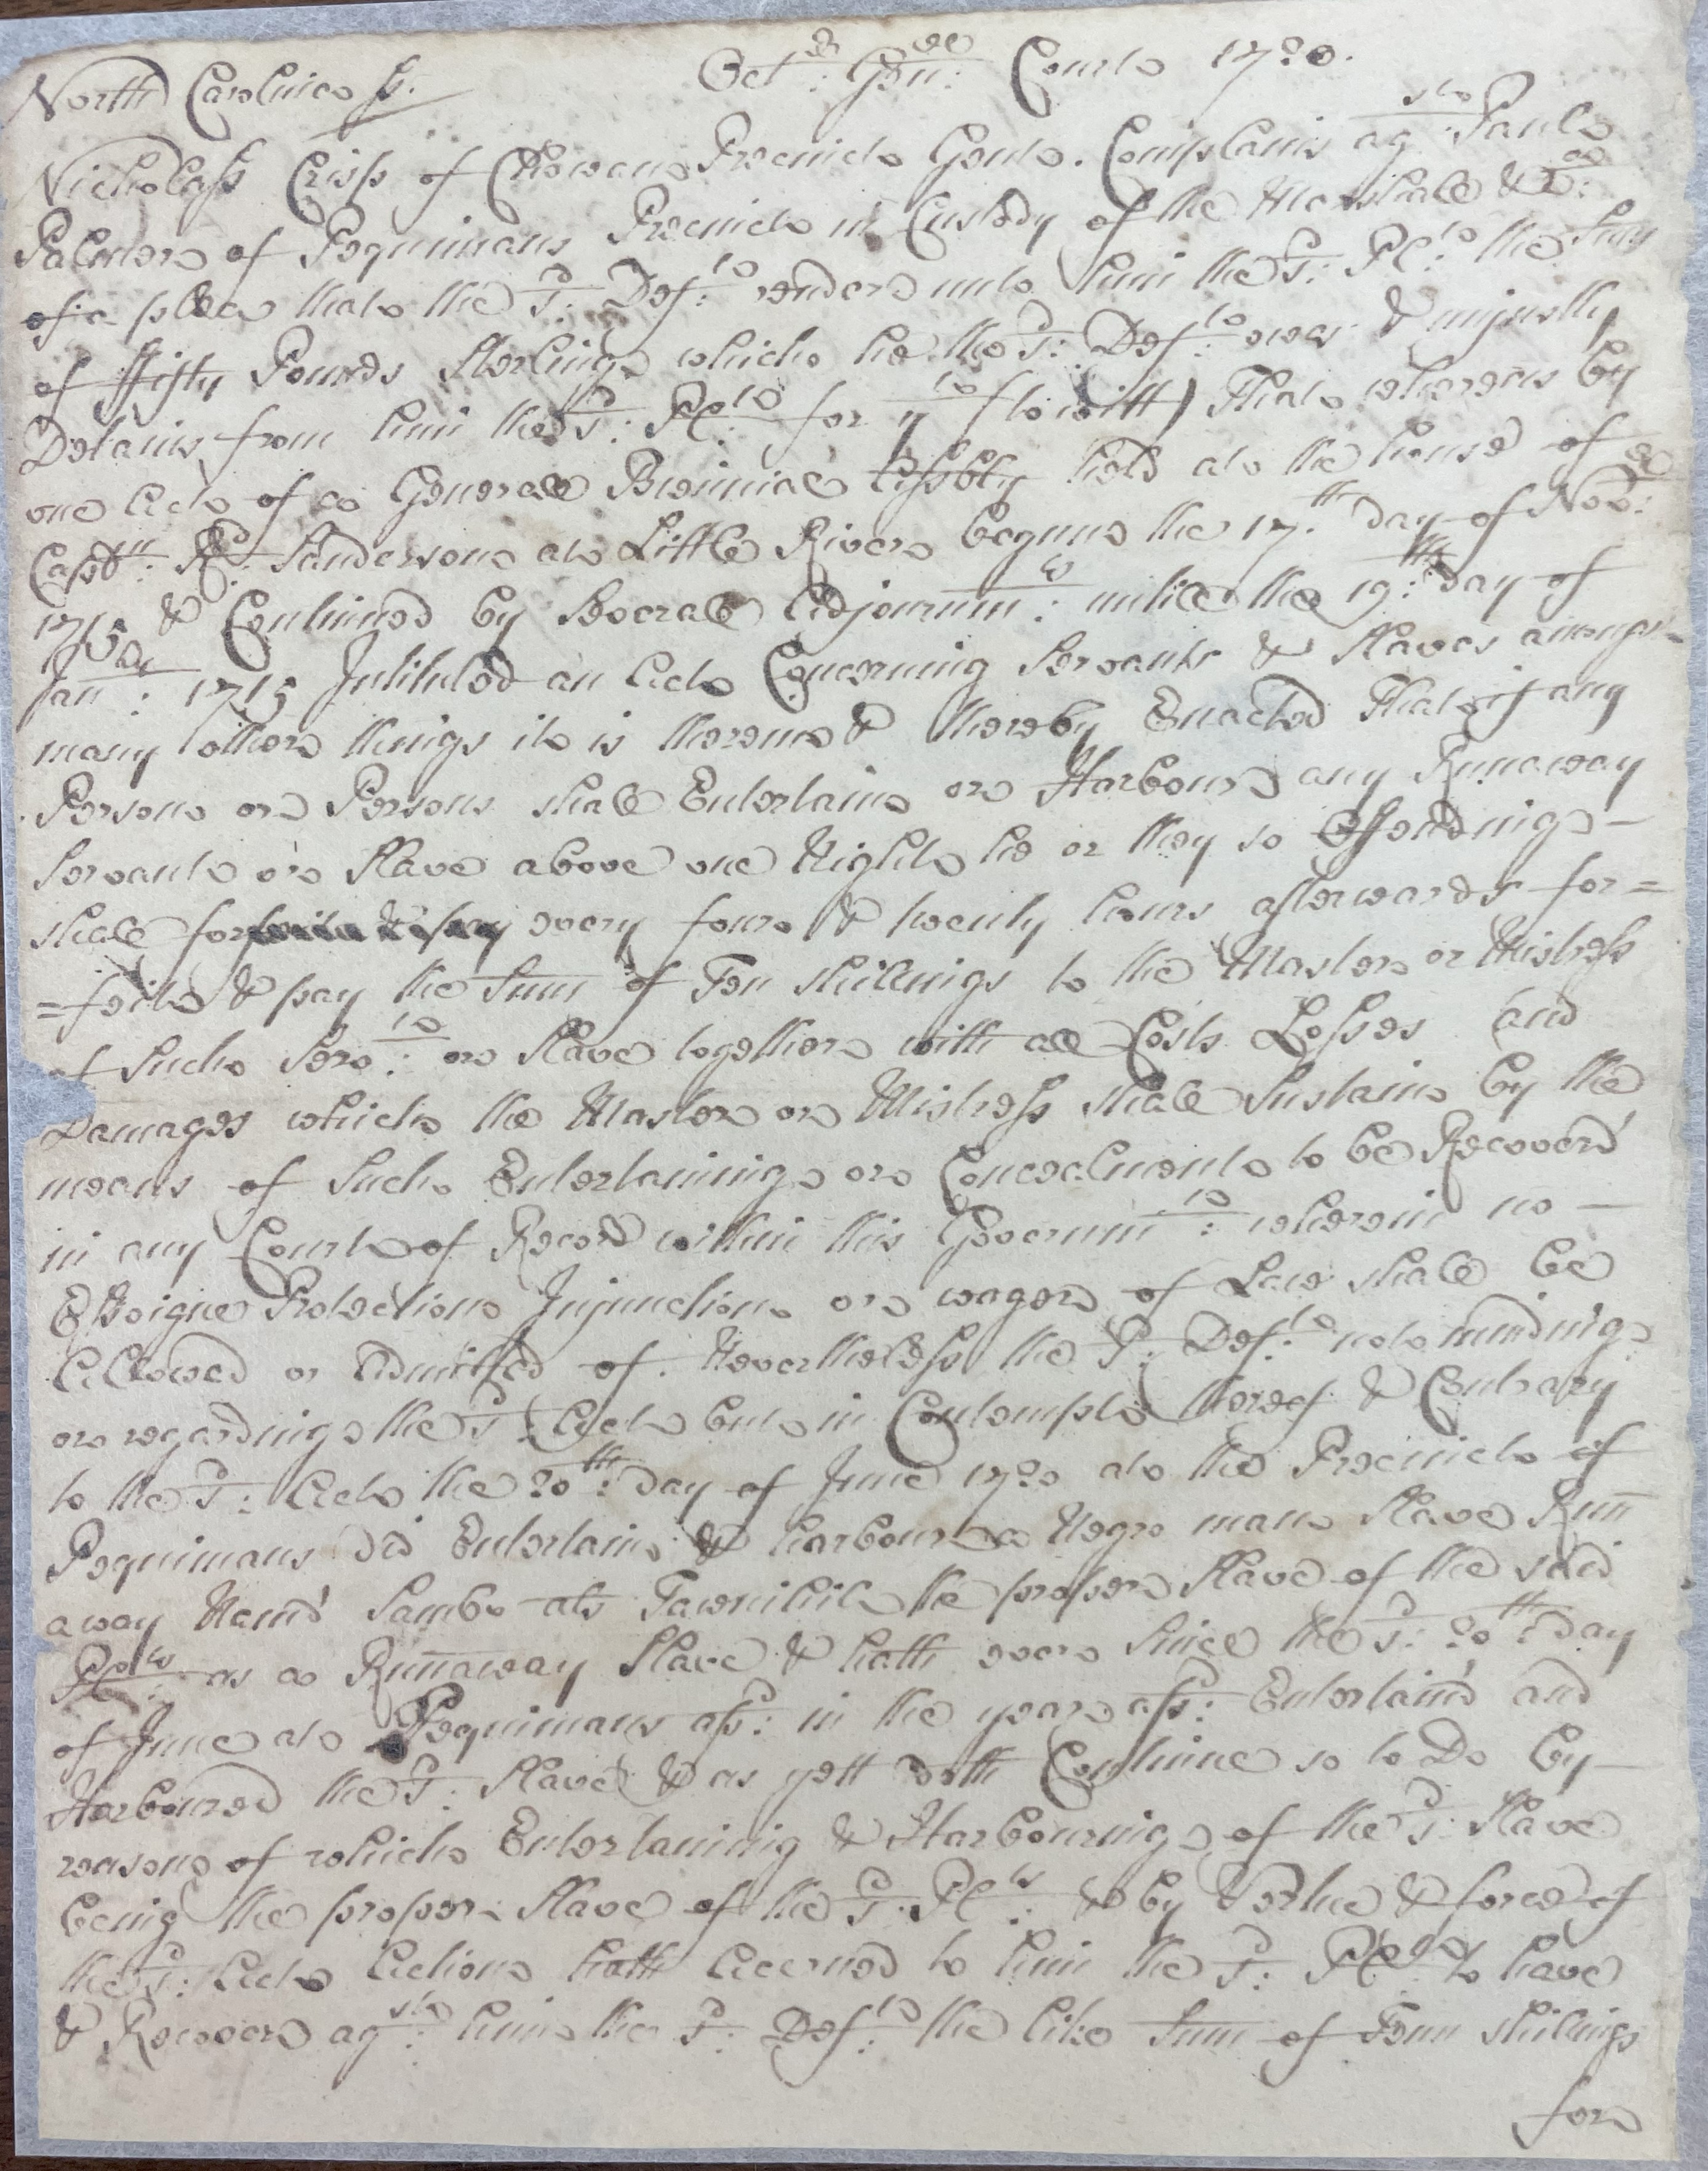 North Carolina ss. Octr: Genll: Court 1720.
Nicholass Crisp of Chowan Precinct Gent. Complains agst: Paul
Palmer of Pequimans Precinct in Custody of the Marshall &ca:
of a plea that the sd: Deft: render unto him the sd: Plt: the Sum
of ffifty Pounds Sterling which he the sd: Deft: owes & unjustly
Detains from him the sd: Plt: for yt (to witt) That whereas by
one Act of a Generall Bienniall Assbly held at the house of
Captn: Rd: Sanderson at Little River begunn the 17th. day of Novr:
1715 & Continued by Severall Adjournmts: untill the 19th: Day of
Janry: 1715 Intituled an Act Concerning Servants & Slaves amongst
many other things it is therein & thereby Enacted That if any
Person or Persons shall Entertain or Harbour any Runaway
Servant or Slave above one Night he or they so Offending -
shall for every four & twenty hours afterwards for=
=feit & pay the Sum of Ten shillings to the Master or Mistress
of Such Servt: or Slave together with all Costs Losses and
Damages which the Master or Mistress shall Sustain by the
means of Such Entertaining or Concealment to be Recoverd
in any Court of Record within this Governmt: wherein no -
Essoigne Protection Injunction or wager of Law shall be
Allowed or Admitted of. Nevertheless the sd: Deft: not minding
or regarding the sd: Act but in Contempt thereof & Contrary
to the sd: Act the 20th: Day of June 1720 at the Precinct of
Pequimans did Entertain & harbour a Negro man Slave Runn
away Nam'd Sambo als Tawnihil the proper Slave of the said
Plts: as a Runnaway Slave & hath ever Since the sd: 20th: day
of June at Pequimans afsd: in the year afsd: Entertain'd and
Harboured the sd: Slave & as yett doth Continue so to Do by -
reason of which Entertaining & Harbouring of the sd: Slave
being the proper Slave of the sd: Plts: & by Vertue & force of
the sd: Act Action hath Accrued to him the sd: Plt: to have
& Recover agst: him the sd: Deft: the like Sum of Tenn shillings
for